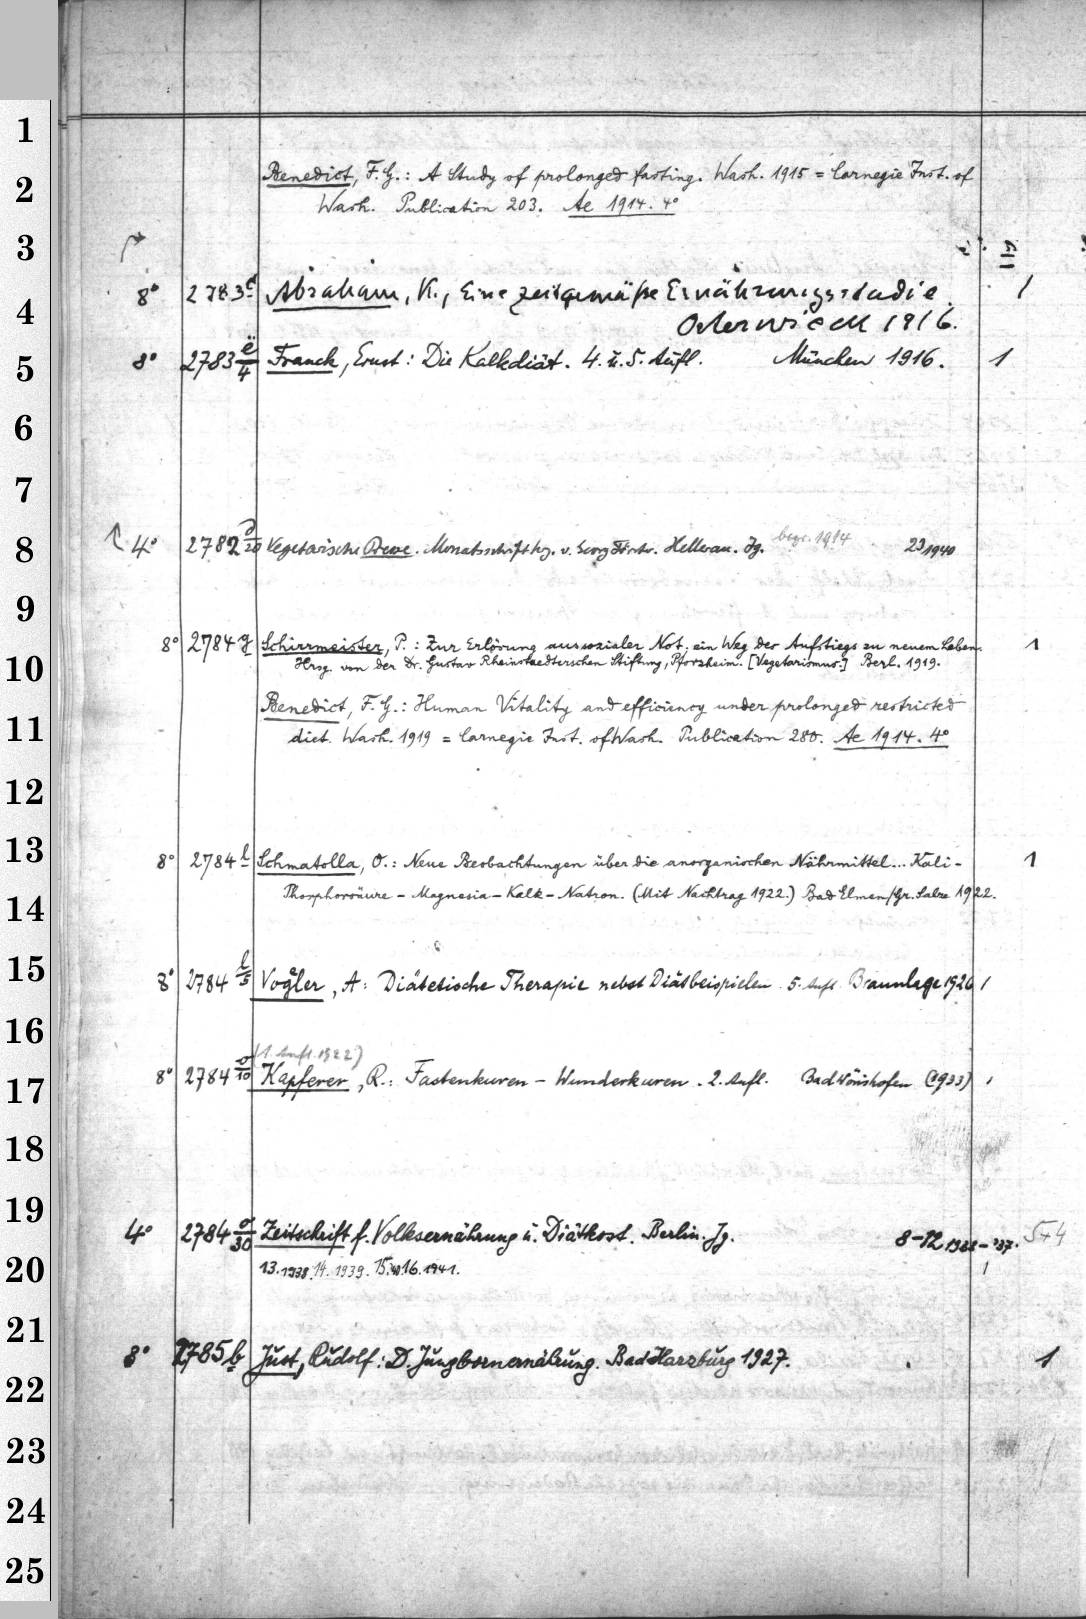 1
Benedict, F. G.: A Study of prolonged fasting. Wash. 1915 = Carnegie Inst. of
2
Wash. Publication 203. Ae 1914. 4°
3
8° 2783 d Abraham, K., Eine zeitgemäße Ernährungsstudie. 1
4
Osterwieck 1916.
5
8° 2783 e/4 Franck, Ernst: Die Kalkdiät. 4. u. 5. Aufl. München 1916. 1
6
7
8
4° 2782 d/20 Vegetarische Presse. Monatsschrift hg. v. Georg Förster. Hellerau. Jg. begr. 1914 23 1940
9
8° 2784 g Schirrmeister, P.: Zur Erlösung aus sozialer Not, ein Weg des Aufstiegs zu neuem Leben. 1
10
Hrsg. von der Dr. Gustav Rheinstaedterschen Stiftung, Pforzheim. [Vegetarismus.] Berl. 1919.
Benedict, F. G.: Human Vitality and efficiency under prolonged restricted
11
diet. Wash. 1919 = Carnegie Inst. of Wash. Publication 280. Ae 1914. 4°
12
13
8° 2784 l Schmatolla, O.: Neue Beobachtungen über die anorganischen Nährmittel... Kali- 1
14
Phosphorsäure - Magnesia - Kalk - Natron. (Mit Nachtrag 1922.) Bad Elmen/Gr. Salze 1922.
15
8° 2784 l/5 Vogler, A: Diätetische Therapie nebst Diätbeispielen. 5. Aufl. Braunlage 1926 1
16
(1. Aufl. 1922)
17
8° 2784 o/10 Kapferer, R.: Fastenkuren - Wunderkuren. 2. Aufl. Bad Wörishofen (1933) 1
18
19
4° 2784 o/30 Zeitschrift f. Volksernährung u. Diätkost. Berlin. Jg. 8-12 1933-'37. 5+4
20
13. 1938. 14. 1939. 15. 40 16. 1941. 1
21
8° 2785 b Just, Rudolf: D. Jungbornernährung. Bad Harzburg 1927. 1
22
23
24
25